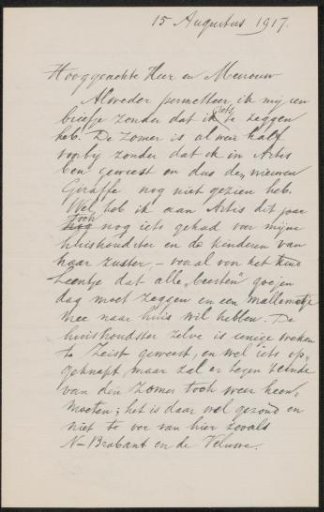 15 Augustus 1917.
Hooggeachte Heer en Mevrouw
Alweder permitteer ik mij een
briefje zonder dat ik iets te zeggen
heb. De zomer is al weer half
voorbij zonder dat ik in Artis
ben geweest en dus den nieuwen
Giraffe nog niet gezien heb.
Wel heb ik aan Artis dit jaar
toch nog iets gehad voor mijne
huishoudster en de kinderen van
haar zuster, – vooral voor het kind
dat alle "beesten" goejen
dag moet zeggen en een
mee naar huis wil hebben. De
huishoudster zelve is eenige weken
te Zeist geweest, en wel iets op-
geknapt, maar zal er tegen het einde
van den zomer toch weer heen
moeten; het is daar wel gezond en
niet te ver van hier zooals
N-Brabant en de Veluwe.